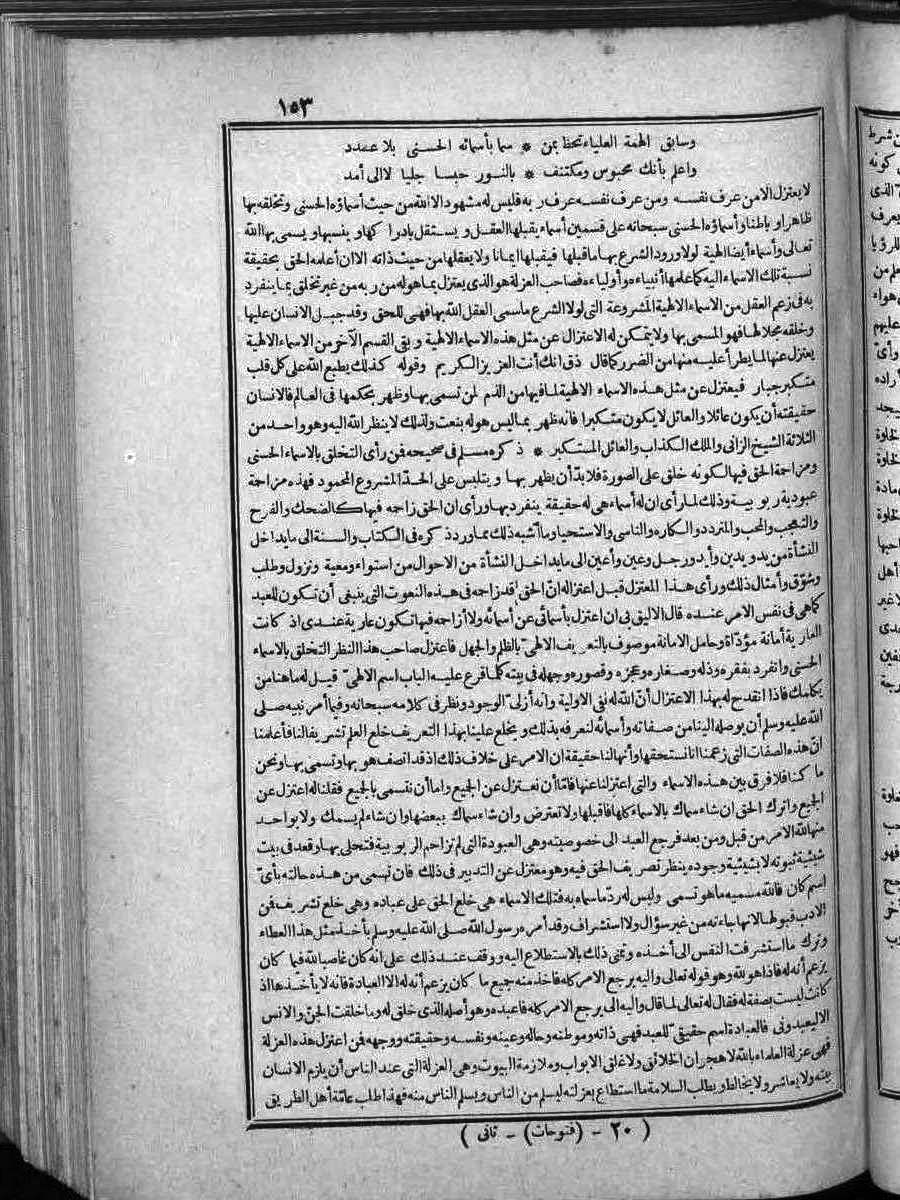 ١٥٣
وسابق الهمة العلياء تحظ بمن * سما بأسمائه الحسنى بلا عدد
واعلم بأنك محبوس ومكتنف * بالنور حبسا جليا لا الى أمد
لا يعتزل الا من عرف نفسه ومن عرف نفسه عرف ربه فليس له مشهود الا الله من حيث أسماؤه الحسنى وتخلقه بها
ظاهرا وباطنا وأسماؤه الحسنى سبحانه على قسمين أسماء يقبلها العقل ويستقل بادراكها وينسبها ويسمى بها الله
تعالى وأسماء أيضا الهية لولا ورود الشرع بها ما قبلها فيقبلها ايمانا ولا يعقلها من حيث ذاته الا ان أعلمه الحق بحقيقة
نسبة تلك الاسماء اليه كما علمها أنبياءه وأولياءه فصاحب العزلة هو الذى يعتزل بما هو له من ربه من غير تخلق بما ينفرد
به فى زعم العقل من الاسماء الالهية المشروعة التى لولا الشرع ما سمى العقل الله بها فهى للحق وقد جبل الانسان عليها
وخلقه محلا لها فهو المسمى بها ولا يتمكن له الاعتزال عن مثل هذه الاسماء الالهية وبقى القسم الآخر من الاسماء الالهية
يعتزل عنها لما يطرأ عليه منها من الضرر كما قال ذق انك أنت العزيز الكريم وقوله كذلك يطبع الله على كل قلب
متكبر جبار فيعتزل عن مثل هذه الاسماء الالهية لما فيها من الذم لمن تسمى بها وظهر بحكمها فى العالم فالانسان
حقيقته أن يكون عائلا والعائل لا يكون متكبرا فانه ظهر بما ليس هو له بنعت ولذلك لا ينظر الله اليه وهو واحد من
الثلاثة الشيخ الزانى والملك الكذاب والعائل المستكبر * ذكره مسلم فى صحيحه فمن رأى التخلق بالاسماء الحسنى
ومزاحة الحق فيها لكونه خلق على الصورة فلا بد أن يظهر بها ويتلبس على الحد المشروع المحمود فهذه مزاحمة
عبودية ربوبية وذلك لما رأى ان له أسماء هى له حقيقة ينفرد بها ورأى ان الحق زاحمه فيها كالضحك والفرح
والتعجب والمحب والمتردد والكاره والناسى والاستحيا وما أشبه ذلك مما ورد ذكره فى الكتاب والسنة الى ما يداخل
النشأة من يد ويدين وأيد ورجل وعين وأعين الى ما يداخل النشأة من الاحوال من استواء ومعية ونزول وطلب
وشوق وأمثال ذلك ورأى هذا المعتزل قبل اعتزاله ان الحق قد زاحمه فى هذه النعوت التى ينبغى أن تكون للعبد
كما هى فى نفس الامر عنده قال الاليق بى ان اعتزل بأسمائى عن أسمائه ولا أزاحمه فيها تكون عارية عندى اذ كانت
العارية أمانة مؤداة وحامل الامانة موصوف بالتعريف الالهى بالظلم والجهل فاعتزل صاحب هذا النظر التخلق بالاسماء
الحسنى وانفرد بفقره وذله وصغاره وعجزه وقصوره وجهله فى بيته كلما قرع عليه الباب اسم الالهى قيل له ما هنا من
يكلمك فاذا انقدح له بهذا الاعتزال أن الله له نفى الاولية وانه أزلى الوجود ونظر فى كلامه سبحانه وفيما أمر نبيه صلى
الله عليه وسلم أن يوصله الينا من صفاته وأسمائه لنعرفه بذلك ويخلع علينا بهذا التعريف خلع العلم تشريفا لنا فأعلمنا
ان هذه الصفات التى زعمنا انا نستحقها وأنها لنا حقيقة ان الامر على خلاف ذلك اذ قد اتصف هو بها وتسمى بها ونحن
ما كنا فلا فرق بين هذه الاسماء والتى اعتزلنا عنها فاما أن نعتزل عن الجميع واما أن نتسمى بالجميع فقلنا له اعتزل عن
الجميع واترك الحق ان شاء سماك بالاسماء كلها فاقبلها ولا تعترض وان شاء سماك ببعضها وان شاء لم يسمك ولا بواحد
منها لله الامر من قبل ومن بعد فرجع العبد الى خصوصيته وهى العبودة التى لم تزاحم الربوبية فتحلى بها وقعد فى بيت
شيئية ثبوته لا بشيئية وجوده ينظر تصريف الحق فيه وهو معتزل عن التدبير فى ذلك فان تسمى من هذه حالته بأى
اسم كان فالله مسميه ما هو تسمى وليس له رد ما سماه به فتلك الاسماء هى خلع الحق على عباده وهى خلع تشريف فمن
الادب قبولها لانها جاءته من غير سؤال ولا استشراف وقد أمره رسول الله صلى الله عليه وسلم بأخذ مثل هذا العطاء
وترك ما استشرفت النفس الى أخذه وتمنى ذلك بالاستطلاع اليه ووقف عند ذلك على انه كان غاصبا لله فيما كان
يزعم أنه له فاذا هو لله وهو قوله تعالى واليه يرجع الامر كله فاخذ منه جميع ما كان يزعم أنه له الا العبادة فانه لا يأخذها اذ
كانت ليست بصفة له فقال له تعالى لما قال واليه الى يرجع الامر كله فاعبده وهو أصله الذى خلق له وما خلقت الجن والانس
الا ليعبدونى فالعبادة اسم حقيقى للعبد فهى ذاته وموطنه وحاله وعينه ونفسه وحقيقته ووجهه فمن اعتزل هذه العزلة
فهى عزلة العلماء بالله لا هجران الخلائق ولا غلق الابواب وملازمة البيوت وهى العزلة التى عند الناس أن يلزم الانسان
بيته ولا يعاشر ولا يخالط ويطلب السلامة ما استطاع بعزلته ليسلم من الناس ويسلم الناس منه فهذا طلب عامة أهل الطريق
( ٢٠ - (فتوحات) - ثانى )